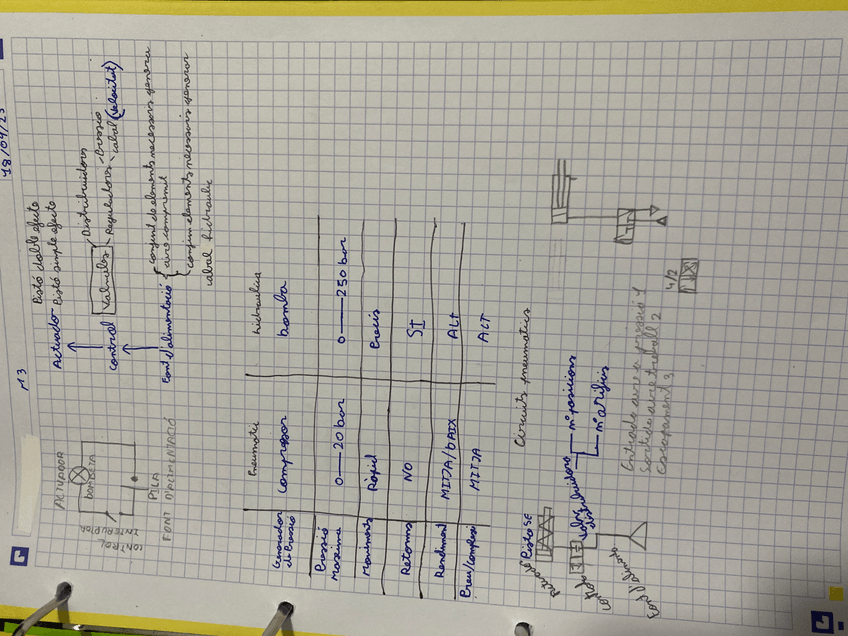 18/04/23
M3
ACTUADOR
BOMBETA
CONTROL
INTERUPTOR
PILA
FONT D'ALIMENTACIÓ
Actuador - Pistó doble efecte
Pistó simple efecte
control
Valvules
Distribuidors
Reguladores - Pressió
cabal (velocitat)
Font d'alimentació
conjunt de elements necessaris generar
aire comprimit
conjun elements necessaris generar
cabal hidraulic
Pneumatic
hidraulica
Generador de Pressió
Compressor
bomba
Pressió
Maxima
0—20 bar
0—250 bar
Moviments
Ràpid
Precís
Retorns
NO
SI
Rendiment
MITJA/bAIX
ALt
Preu/complexi
MITJA
ALT
Circuits pneumatics
Pistó SE
nº posicions
nº orificis
Entrada aire a pressió 1
Sortida aire treball 2
escapament 3
4/2